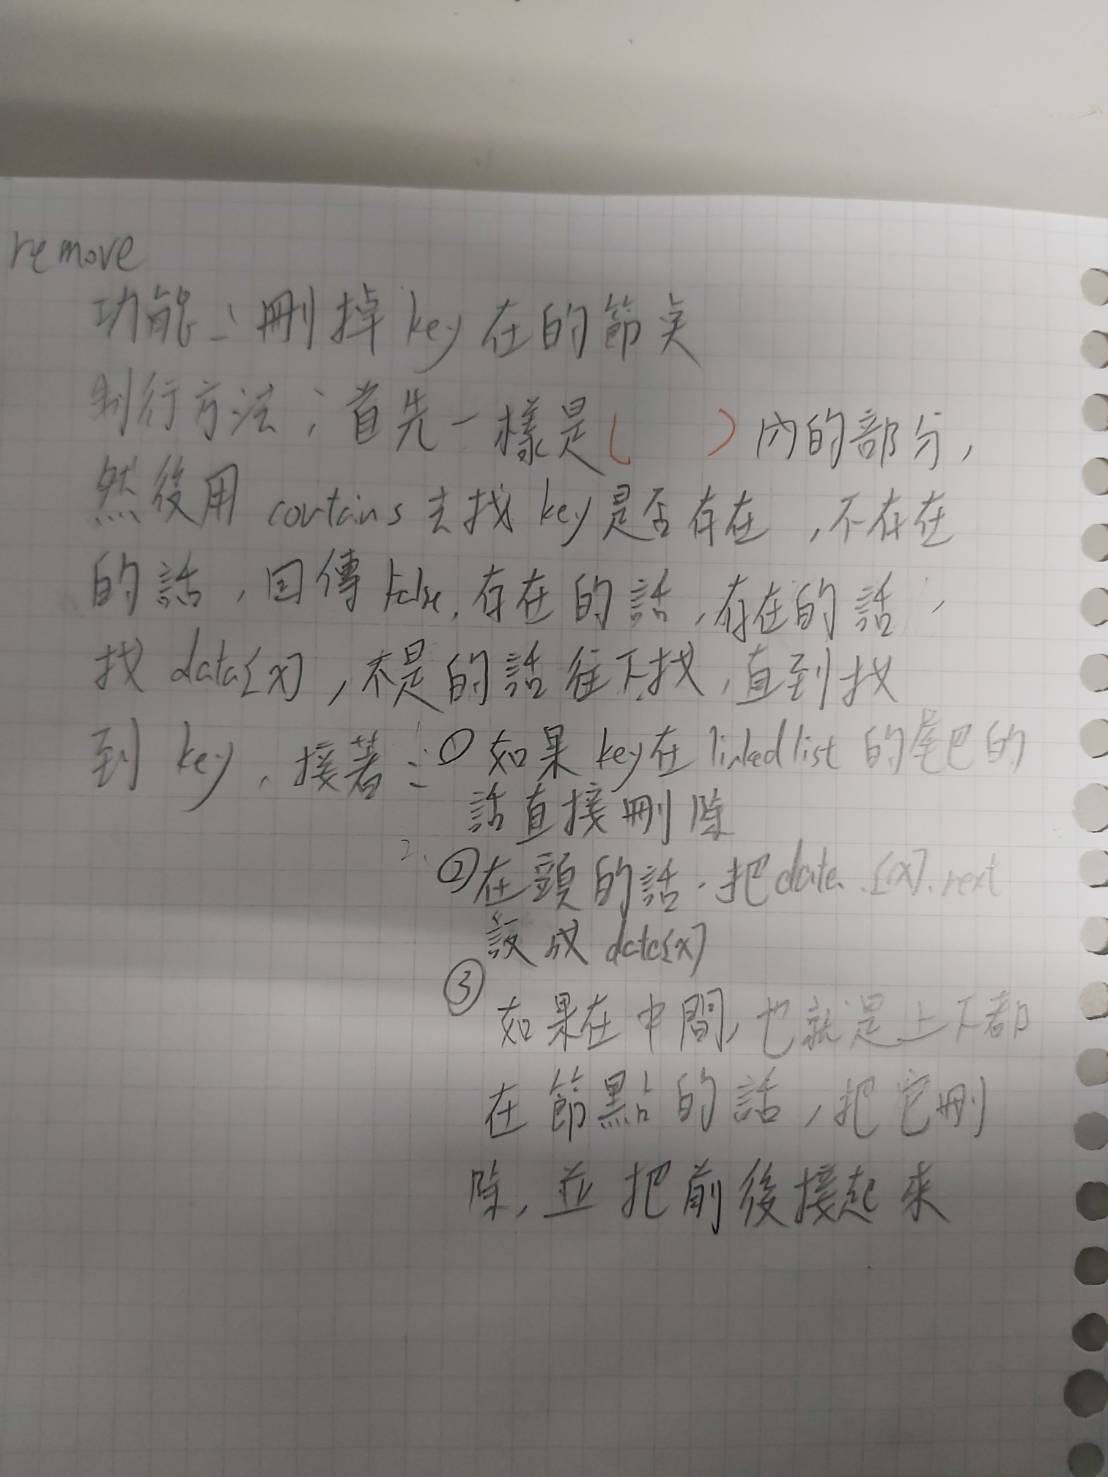 remove
功能：刪掉 key 在的節点
制行方法：首先一樣是( )內的部分，
然後用 contains 去找 key 是否存在，不存在
的話，回傳 False，存在的話，存在的話，
找 data[x]，不是的話往下找，直到找
到 key，接著：① 如果 key 在 linked list 的尾巴的
話直接刪除
②在頭的話，把 data[x].next
設成 data[x]
③
如果在中間，也就是上下都
在節點的話，把它刪
除，並把前後接起來